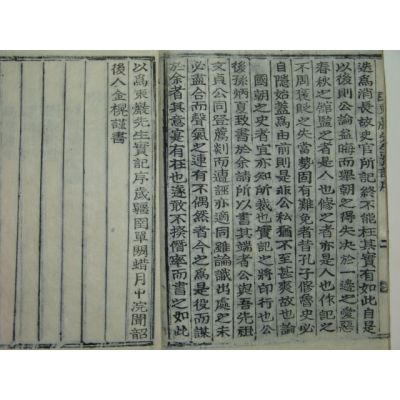 迭爲消長故史官所記終不能枉其實有如此自是
以後則公論益晦而擧朝之得失決於一邊之愛惡
春秋之館監之者是人也修之者亦是人也作記之
不周褒貶之失當勢固有難免者昔孔子修魯史必
自隱始蓋爲由前則是非公私猶不至甚爽故也論
國朝之史者宜亦知所裁也實記之將印行也公
後孫炳夏致書於余請所以書其端者公與吾先祖
文貞公同登薦剡而遭誣亦適同雖論議出處之未
必盡合而聲氣之連有不偶然者今之爲是役而謀
於余者其意寔有在也遂敢不揆僭率而書之如此
以爲東巖先生實記序歲彊圉單閼蜡月中浣聞韶
後人金榥謹書